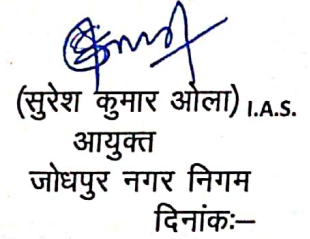 (सुरेश कुमार ओला) I.A.S.
आयुक्त
जोधपुर नगर निगम
दिनांकः–